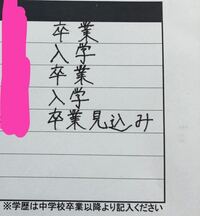 卒業
入学
卒業
入学
卒業見込み
※学歴は中学校卒業以降より記入ください